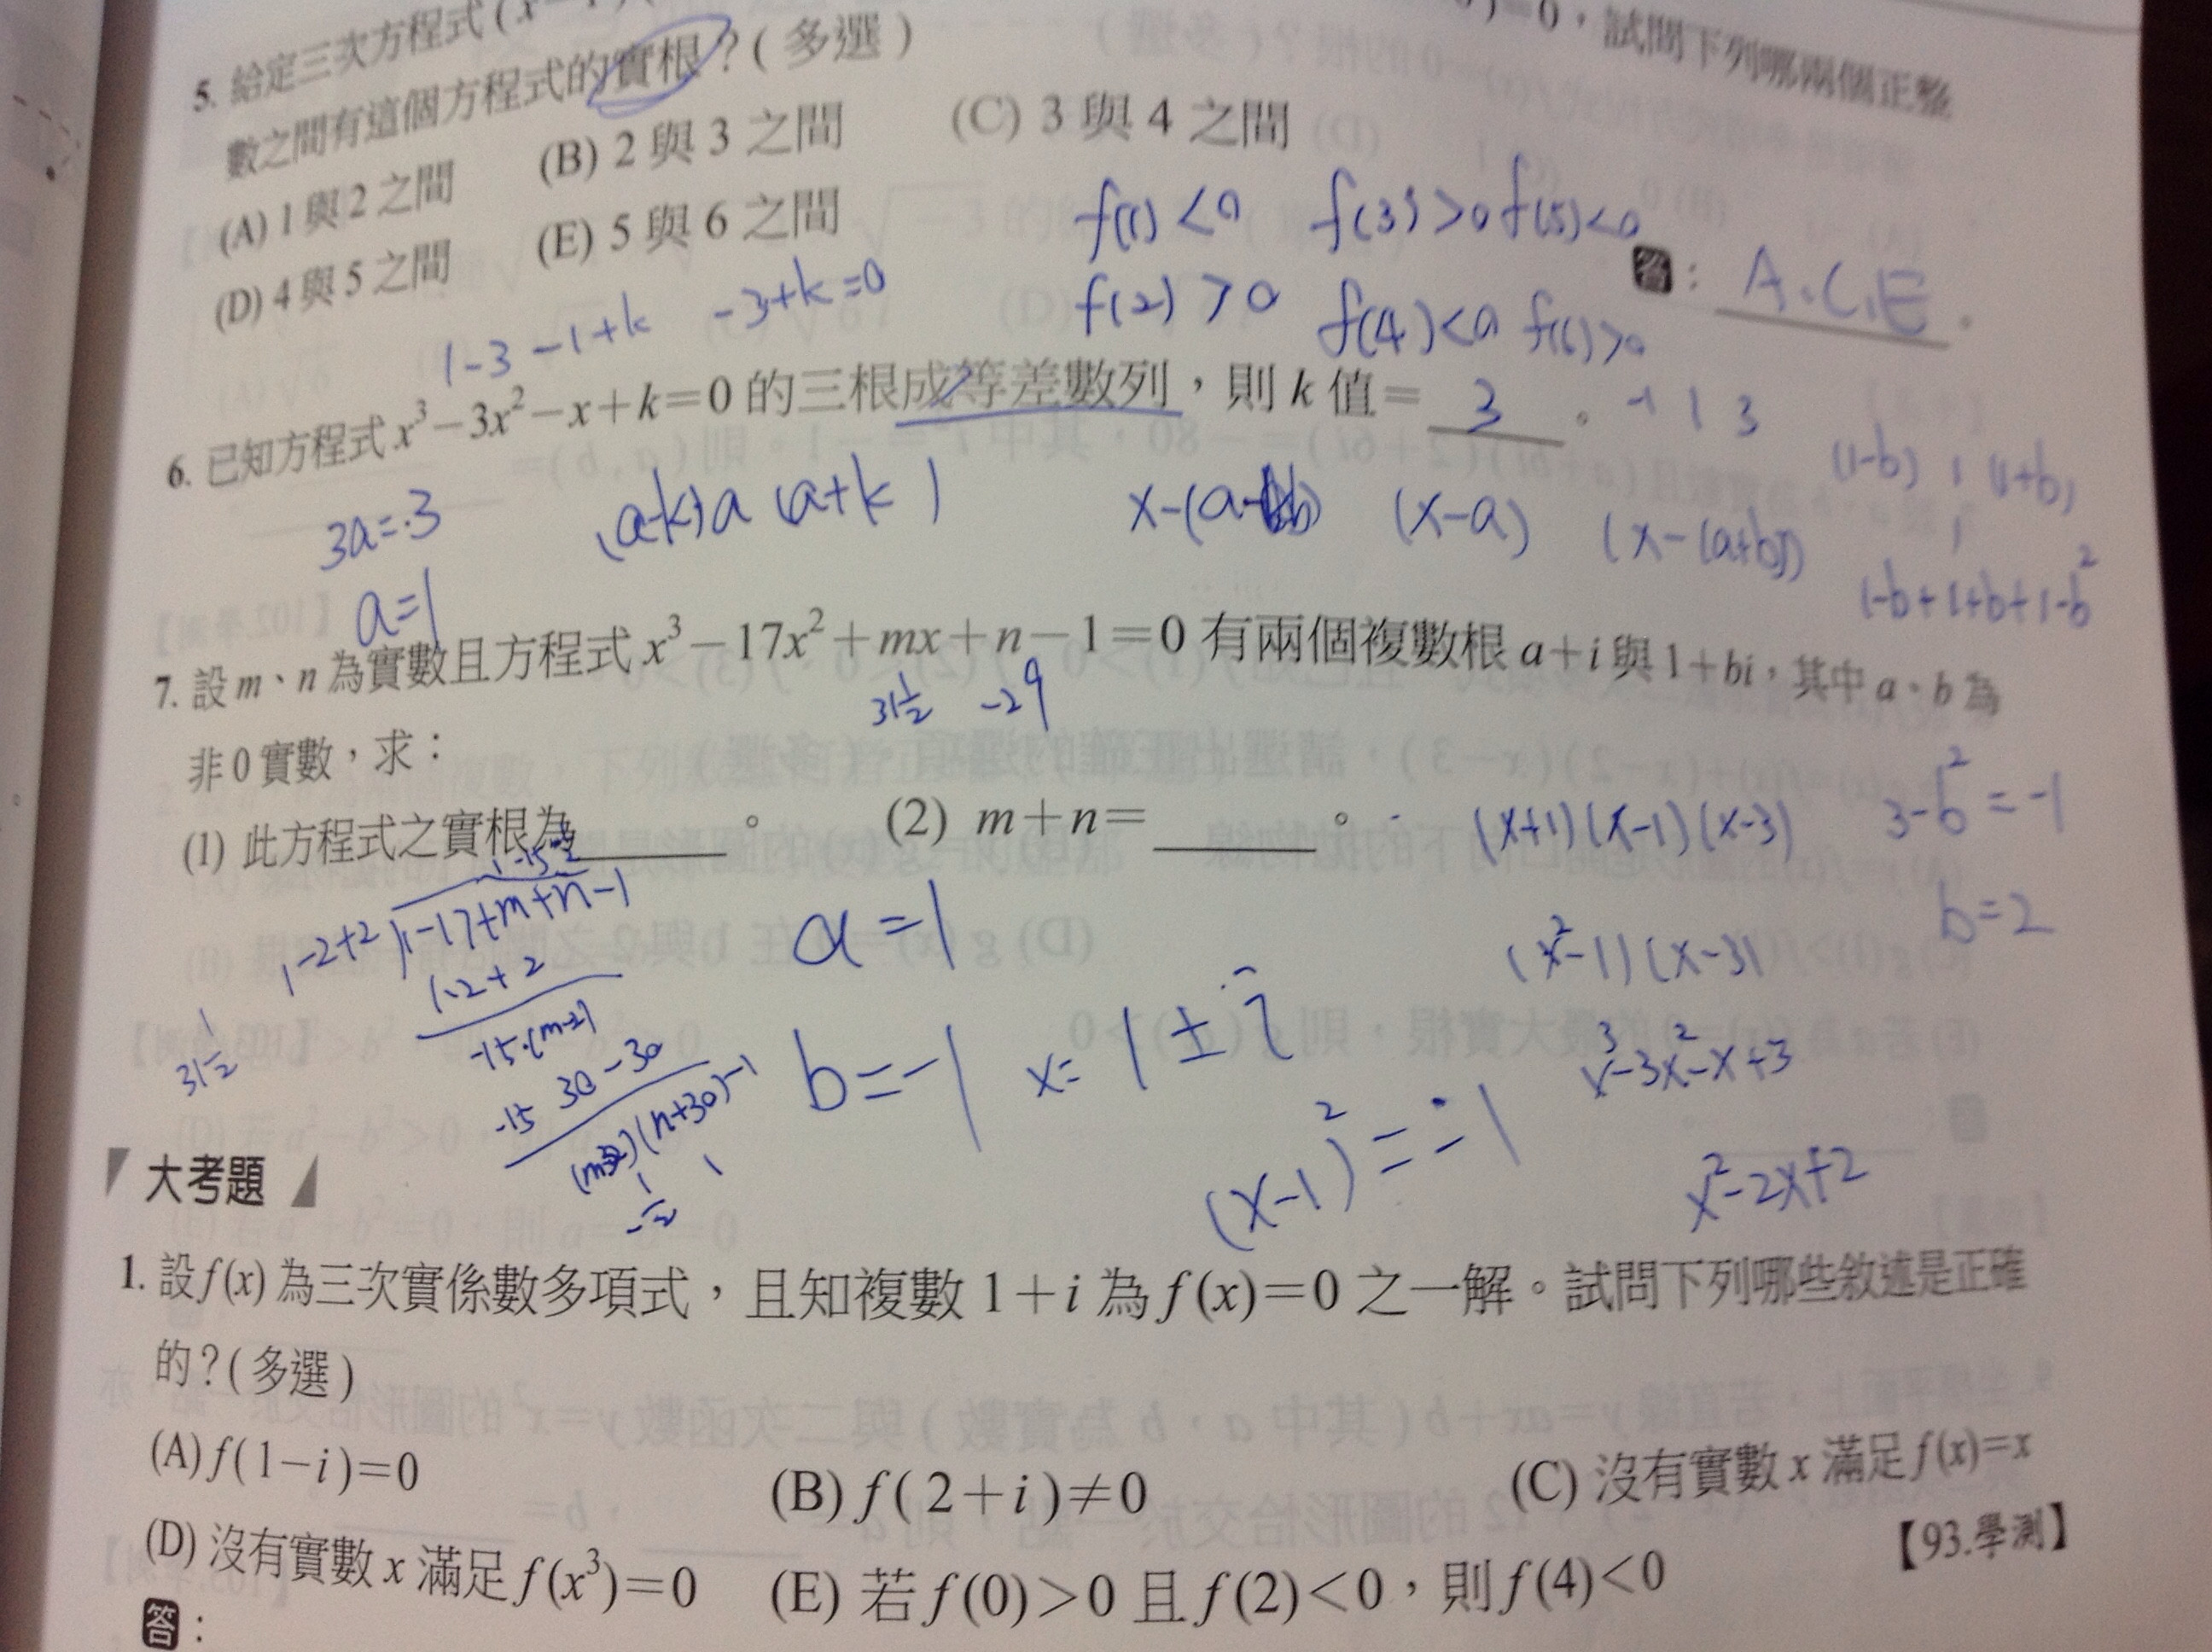 5. 給定三次方程式(x
)=0,試問下列哪兩個正整
數之間有這個方程式的實根?(多選)
(A) 1與2之間 (B) 2與3之間 (C) 3與4之間
(D) 4與5之間 (E) 5與6之間
f(1)<0 f(3)>0 f(5)<0
f(2)>0 f(4)<0 f(6)>0
答: A.C.E.
1-3-1+k -3+k=0
6. 已知方程式 x³-3x²-x+k=0 的三根成等差數列,則 k 值= 3 。 -1 1 3
3a=3 (a-k)a(a+k) (x-a) (x-(a+b)) (1-b) 1 (1+b)
a=1 1-b+1+b+1-b²
7. 設 m、n 為實數且方程式 x³-17x²+mx+n-1=0 有兩個複數根 a+i 與 1+bi,其中 a、b 為
31½ -29
非0實數,求:
(1) 此方程式之實根為 。 (2) m+n= 。
(x+1)(x-1)(x-3) 3-b²=-1
b=2
1-15
1-2+2 1-17+m+n-1
1-2+2
-15 (m-2)
-15 30-30
(n+30)-1
-½
31½
a=1
b=-1 x=1±i
(x-1)²=-1
(x²-1)(x-3)
x³-3x²-x+3
x²-2x+2
大考題
1. 設 f(x) 為三次實係數多項式,且知複數 1+i 為 f(x)=0 之一解。試問下列哪些敘述是正確
的?(多選)
(A) f(1-i)=0 (B) f(2+i)≠0 (C) 沒有實數 x 滿足 f(x)=x
(D) 沒有實數 x 滿足 f(x³)=0 (E) 若 f(0)>0 且 f(2)<0,則 f(4)<0
【93.學測】
答: